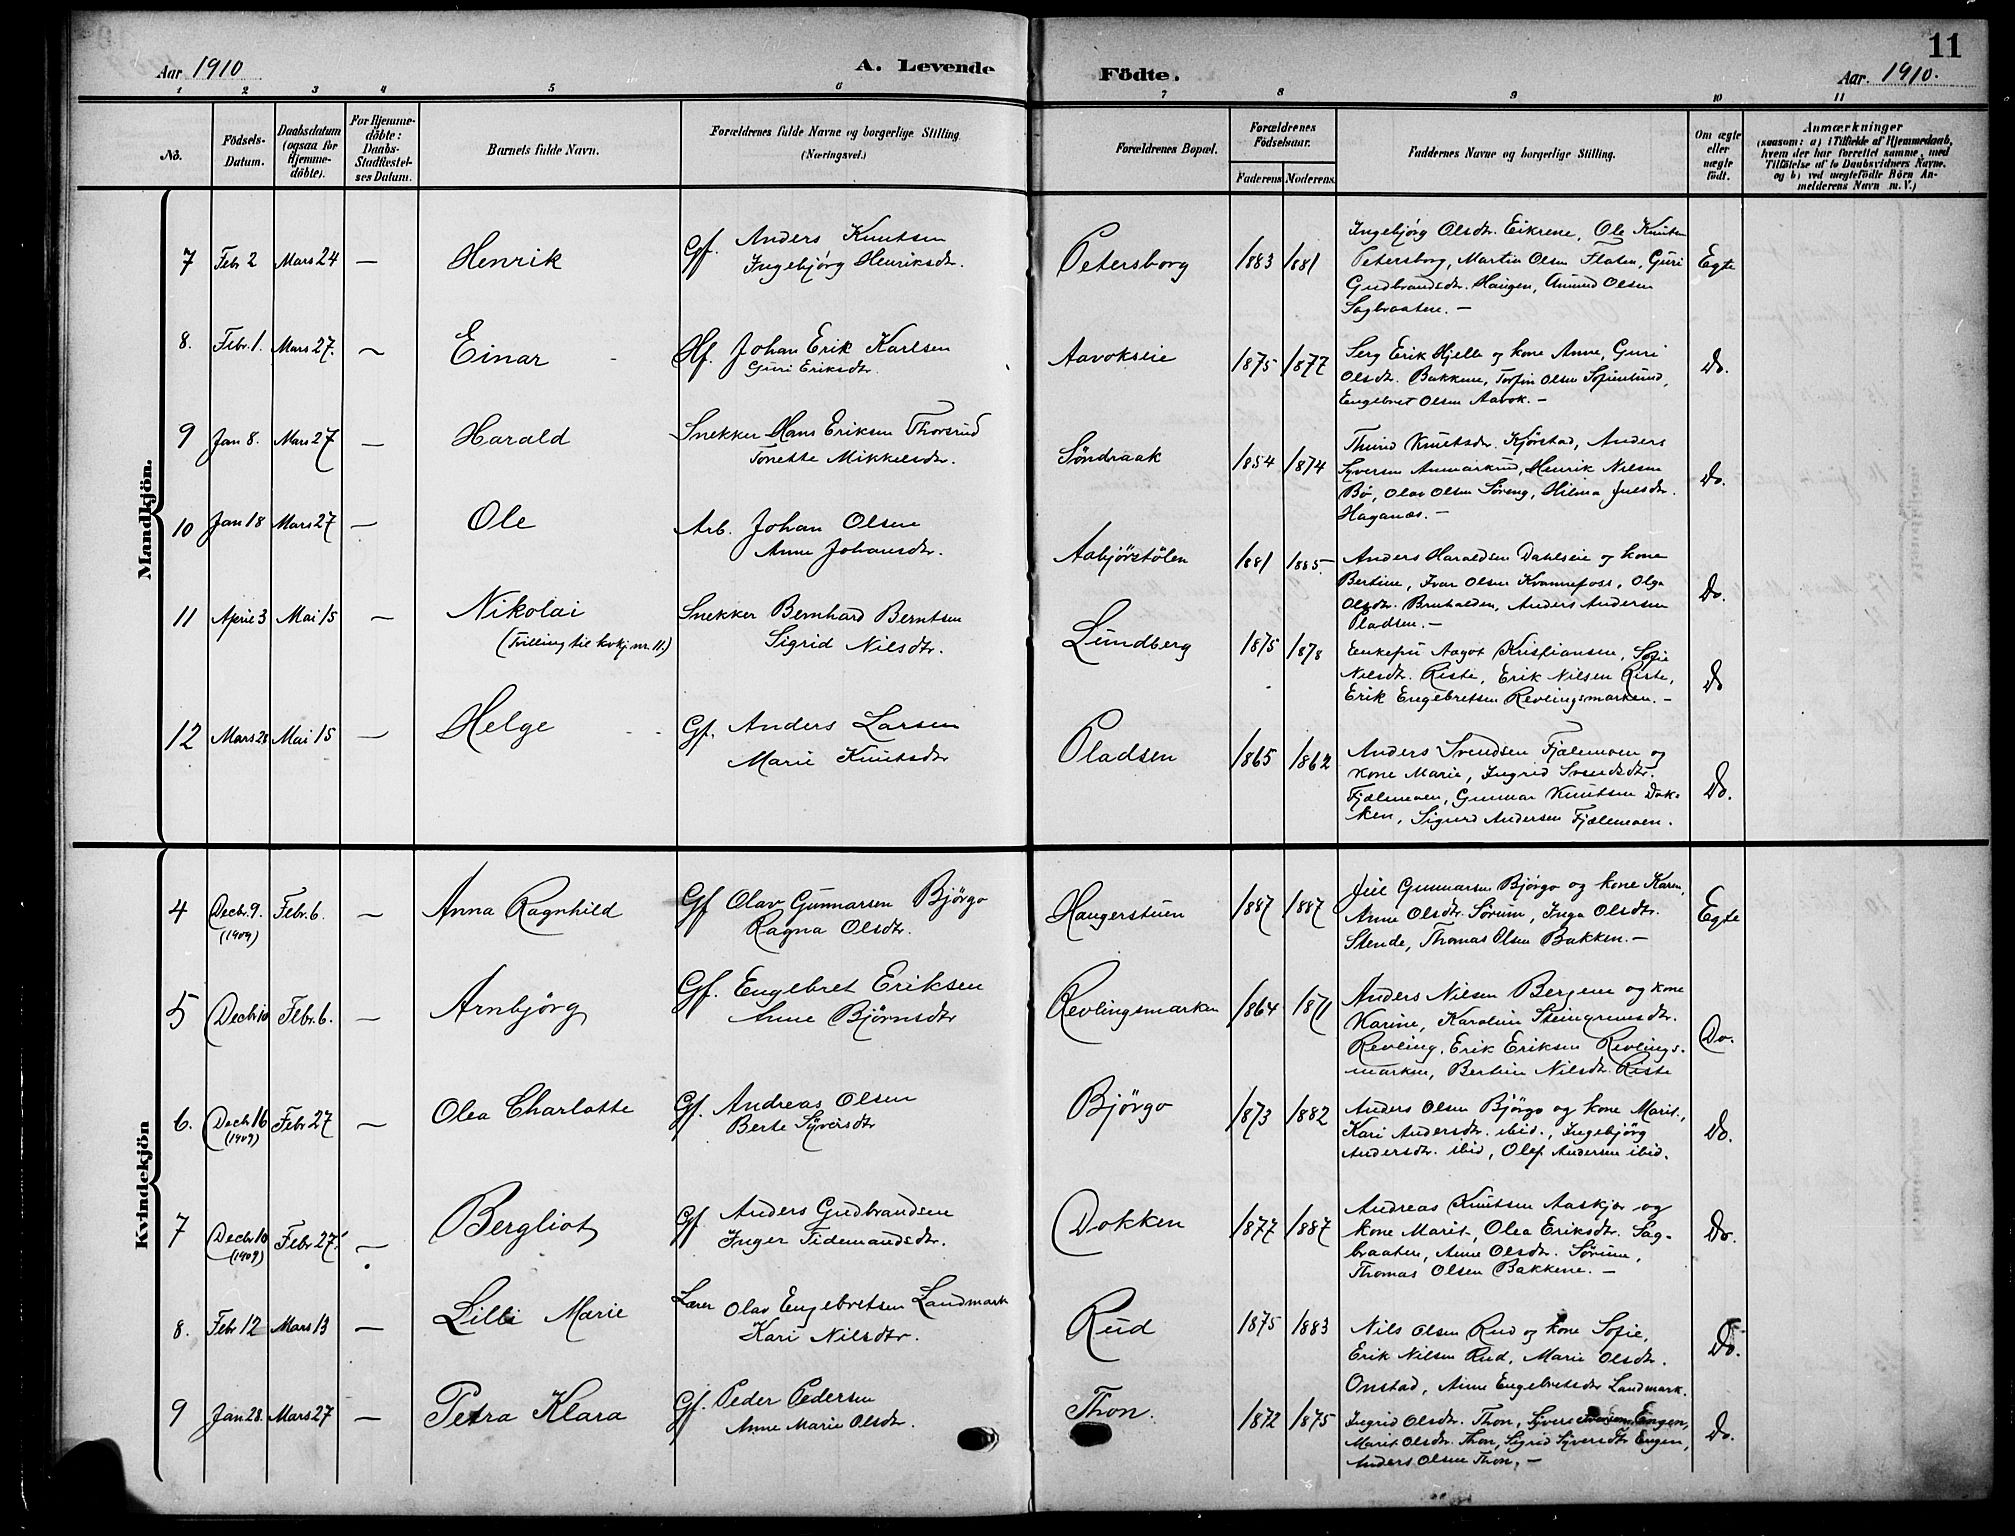 11
Aar 1910
A. Levende
Födte.
Aar. 1910.
1 2 3 4 5 6 7 8 9 10 11
No.
Födsels-
Datum.
Daabsdatum
(ogsaa for
Hjemme-
döbte).
For Hjemme-
döbte:
Daabs-
Stadfestel-
ses Datum.
Barnets fulde Navn.
Forældrenes fulde Navne og borgerlige Stilling.
(Næringsvei.)
Forældrenes Bopæl.
Forældrenes
Födselsaar.
Faderens Moderens.
Faddernes Navne og borgerlige Stilling.
Om ægte
eller
uægte
födt.
Anmærkninger
(saasom: a) i Tilfælde af Hjemmedaab,
hvem der har forrettet samme, med
Tilföielse af to Daabsvidners Navne.
og b) ved uægtefödte Börn An-
melderens Navn m. V.)
Mandkjön.
7 Febr 2 Mars 24 — Henrik
Gf. Anders Knutsen
Ingebjörg Henriksdtr.
Petersborg 1883 1881
Ingebjörg Olsdtr. Eikrene, Ole Knutsen
Petersborg, Martin Olsen Flaten, Guri
Gudbrandsdtr. Haugen, Amund Olsen
Sagbraaten. —
Egte
8. Febr. 1. Mars 27. — Einar
Hf. Johan Erik Karlsen
Guri Eriksdtr.
Aavokseie 1875 1877
Serg Erik Hjelle og kone Anne, Guri
Olsdtr. Bakkene, Torfin Olsen Sofienlund,
Engebret Olsen Aavok. —
Do.
9 Jan 8. Mars 27 — Harald
Snekker Hans Eriksen Thorsrud
Tonette Mikkelsdtr.
Söndraak 1854 1874
Thurid Knutsdtr. Kjörstad, Anders
Syversen Anmarkrud, Henrik Nilsen
Bö, Olav Olsen Söreng, Hilma Julsdtr.
Haganæs. —
Do.
10 Jan 18 Mars 27 — Ole
Arb. Johan Olsen
Anne Johansdtr.
Aabjörstölen 1881 1885.
Anders Haraldsen Dahlseie og kone
Bertine, Ivar Olsen Kvannefoss, Olga
Olsdtr. Bruhalden, Anders Andersen
Pladsen. —
Do.
11 April 3 Mai 15 — Nikolai
(Tvilling til kvkj. nr. 11.)
Snekker Bernhard Berntsen
Sigrid Nilsdtr.
Lundberg 1875 1878
Enkefru Aagot Kristiansen, Sofie
Nilsdtr. Riste, Erik Nilsen Riste,
Erik Engebretsen Revlingsmarken. —
Do
12 Mars 28 Mai 15 — Helge
Gf. Anders Larsen
Marie Knutsdtr
Pladsen 1865 1862
Anders Svendsen Fjælemoen og
kone Marie, Ingrid Svendsdtr.
Fjælemoen, Gunnar Knutsen Dok-
ken, Sigurd Andersen Fjælemoen.
Do.
Kvindekjön
4 Decbr. 9. Febr. 6. — Anna Ragnhild
(1909)
Gf Olav Gunnarsen Björgo
Ragna Olsdtr.
Haugerstuen 1887 1887
Juel Gunnarsen Björgo og kone Karen,
Anne Olsdtr. Sörum, Inga Olsdtr.
Stende, Thomas Olsen Bakken. —
Egte
5 Decbr 10 Febr. 6. — Arnbjörg
Gf. Engebret Eriksen
Anne Björnsdtr
Revlingsmarken 1864 1871
Anders Nilsen Bergene og kone
Karine, Karoline Steingrimsdtr.
Revling, Erik Eriksen Revlings-
marken, Bertine Nilsdtr. Riste
Do.
6. Decbr 16 Febr 27 — Olea Charlotte
(1909)
Gf. Andreas Olsen
Berte Syversdtr
Björgo 1873 1882
Anders Olsen Björgo og kone Marit,
Kari Andersdtr. ibid., Ingebjörg
Andersdtr. ibid, Olef Andersen ibid.
Do.
7 Decbr 10 Febr 27. — Bergliot
(1909)
Gf Anders Gudbrandsen
Inger Tidemandsdtr.
Dokken 1877 1887
Andreas Knutsen Aaskjer og
kone Marit, Olea Eriksdtr. Sag-
braaten, Anne Olsdtr. Sörum,
Thomas Olsen Bakkene. —
Do.
8. Febr 12 Mars 13 — Lilli Marie
Lærer Olav Engebretsen Landmark
Kari Nilsdtr.
Rud 1875 1883
Nils Olsen Rud og kone Sofie,
Erik Nilsen Rud, Marie Olsdtr.
Onstad, Anne Engebretsdtr Landmark.
Do.
9 Jan 28. Mars 27 — Petra Klara
Gf. Peder Pedersen
Anne Marie Olsdtr.
Thon. 1872 1875
Ingrid Olsdtr. Thon, Syver Iversen Engen,
Marit Olsdtr. Thon, Sigrid Syversdtr Engen,
Anders Olsen Thon. —
Do.